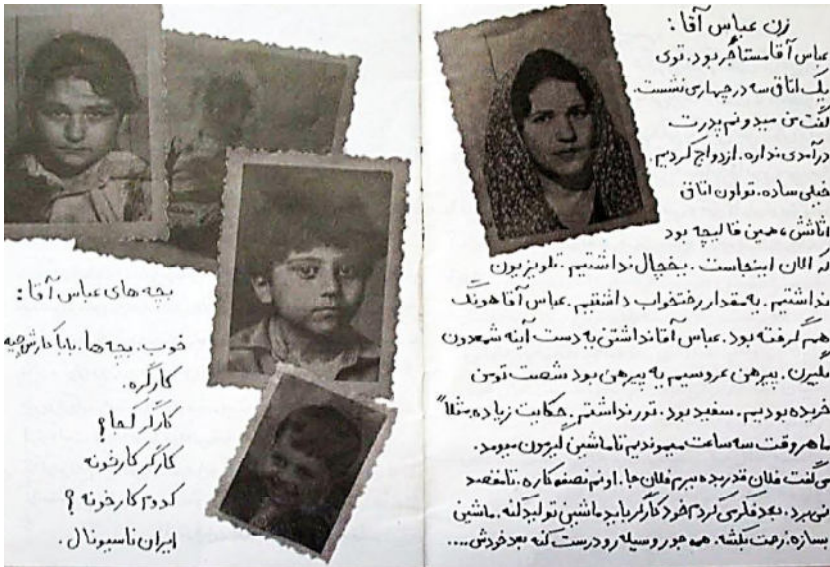 زن عباس آقا:
عباس آقا مستأجر بود. توی
یک اتاق سه در چهار می نشست.
گفت من میدونم پدرت
درآمدی نداره. ازدواج کردیم.
خیلی ساده. تو اون اتاق
اثاثش، همین قالیچه بود
که الان اینجاست. یخچال نداشتیم. تلویزیون
نداشتیم. یه مقدار رختخواب داشتیم. عباس آقا هونگ
هم گرفته بود. عباس آقا نداشتن یه دست آینه شمعدون
بگیرن. پیرهن عروسیم یه پیرهن بود شصت تومن
خریده بودیم. سفید بود. تور نداشتم. حکایت زیاده مثلاً
ما هر وقت سه ساعت میموندیم تا ماشین گیرمون میومد.
می گفت فلان قدر بده ببرم فلان جا. اونم نصفه کاره. تا مقصد
نمی برد. بعد فکر می کردم خود کارگر باید ماشین تولید کنه. ماشین
بسازه. زحمت بکشه. همه جور وسیله رو درست کنه بعد خودش....
بچه های عباس آقا:
خوب. بچه ها. بابا کارش چیه
کارگره.
کارگر کجا؟
کارگر کارخونه
کدوم کارخونه؟
ایران ناسیونال.